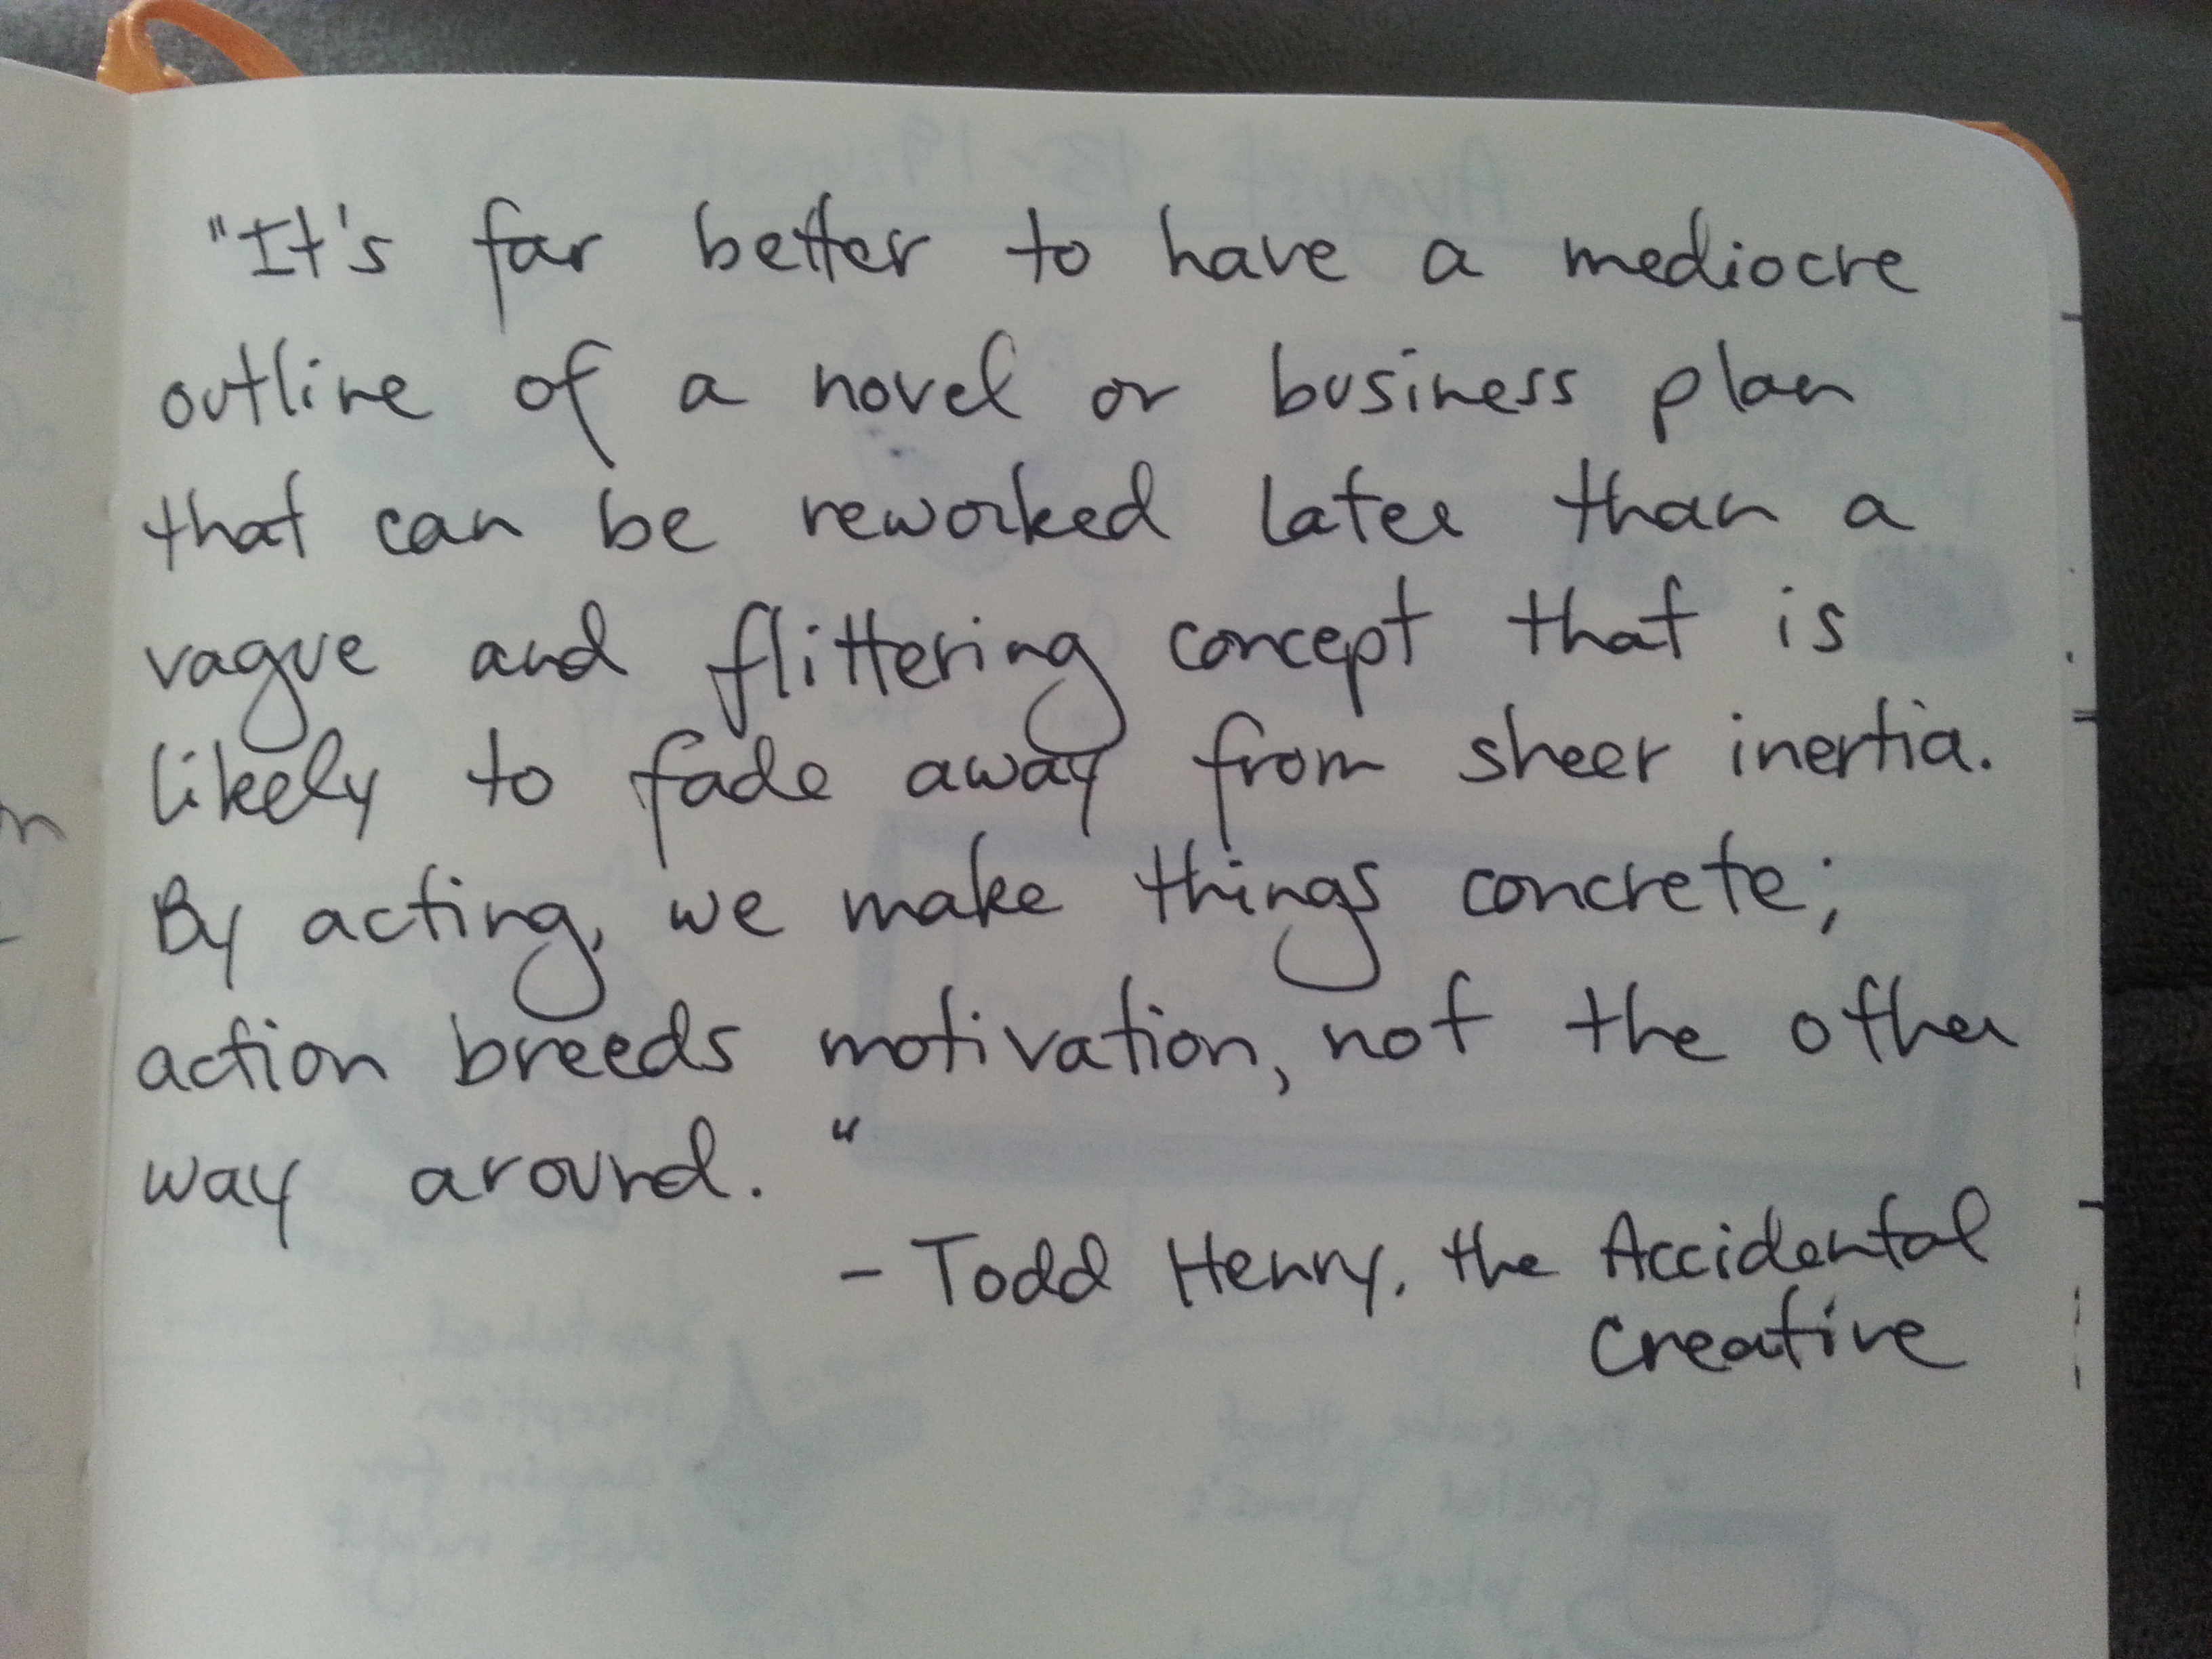 "It's far better to have a mediocre
outline of a novel or business plan
that can be reworked later than a
vague and flittering concept that is
likely to fade away from sheer inertia.
By acting, we make things concrete;
action breeds motivation, not the other
way around."
- Todd Henry, the Accidental
Creative